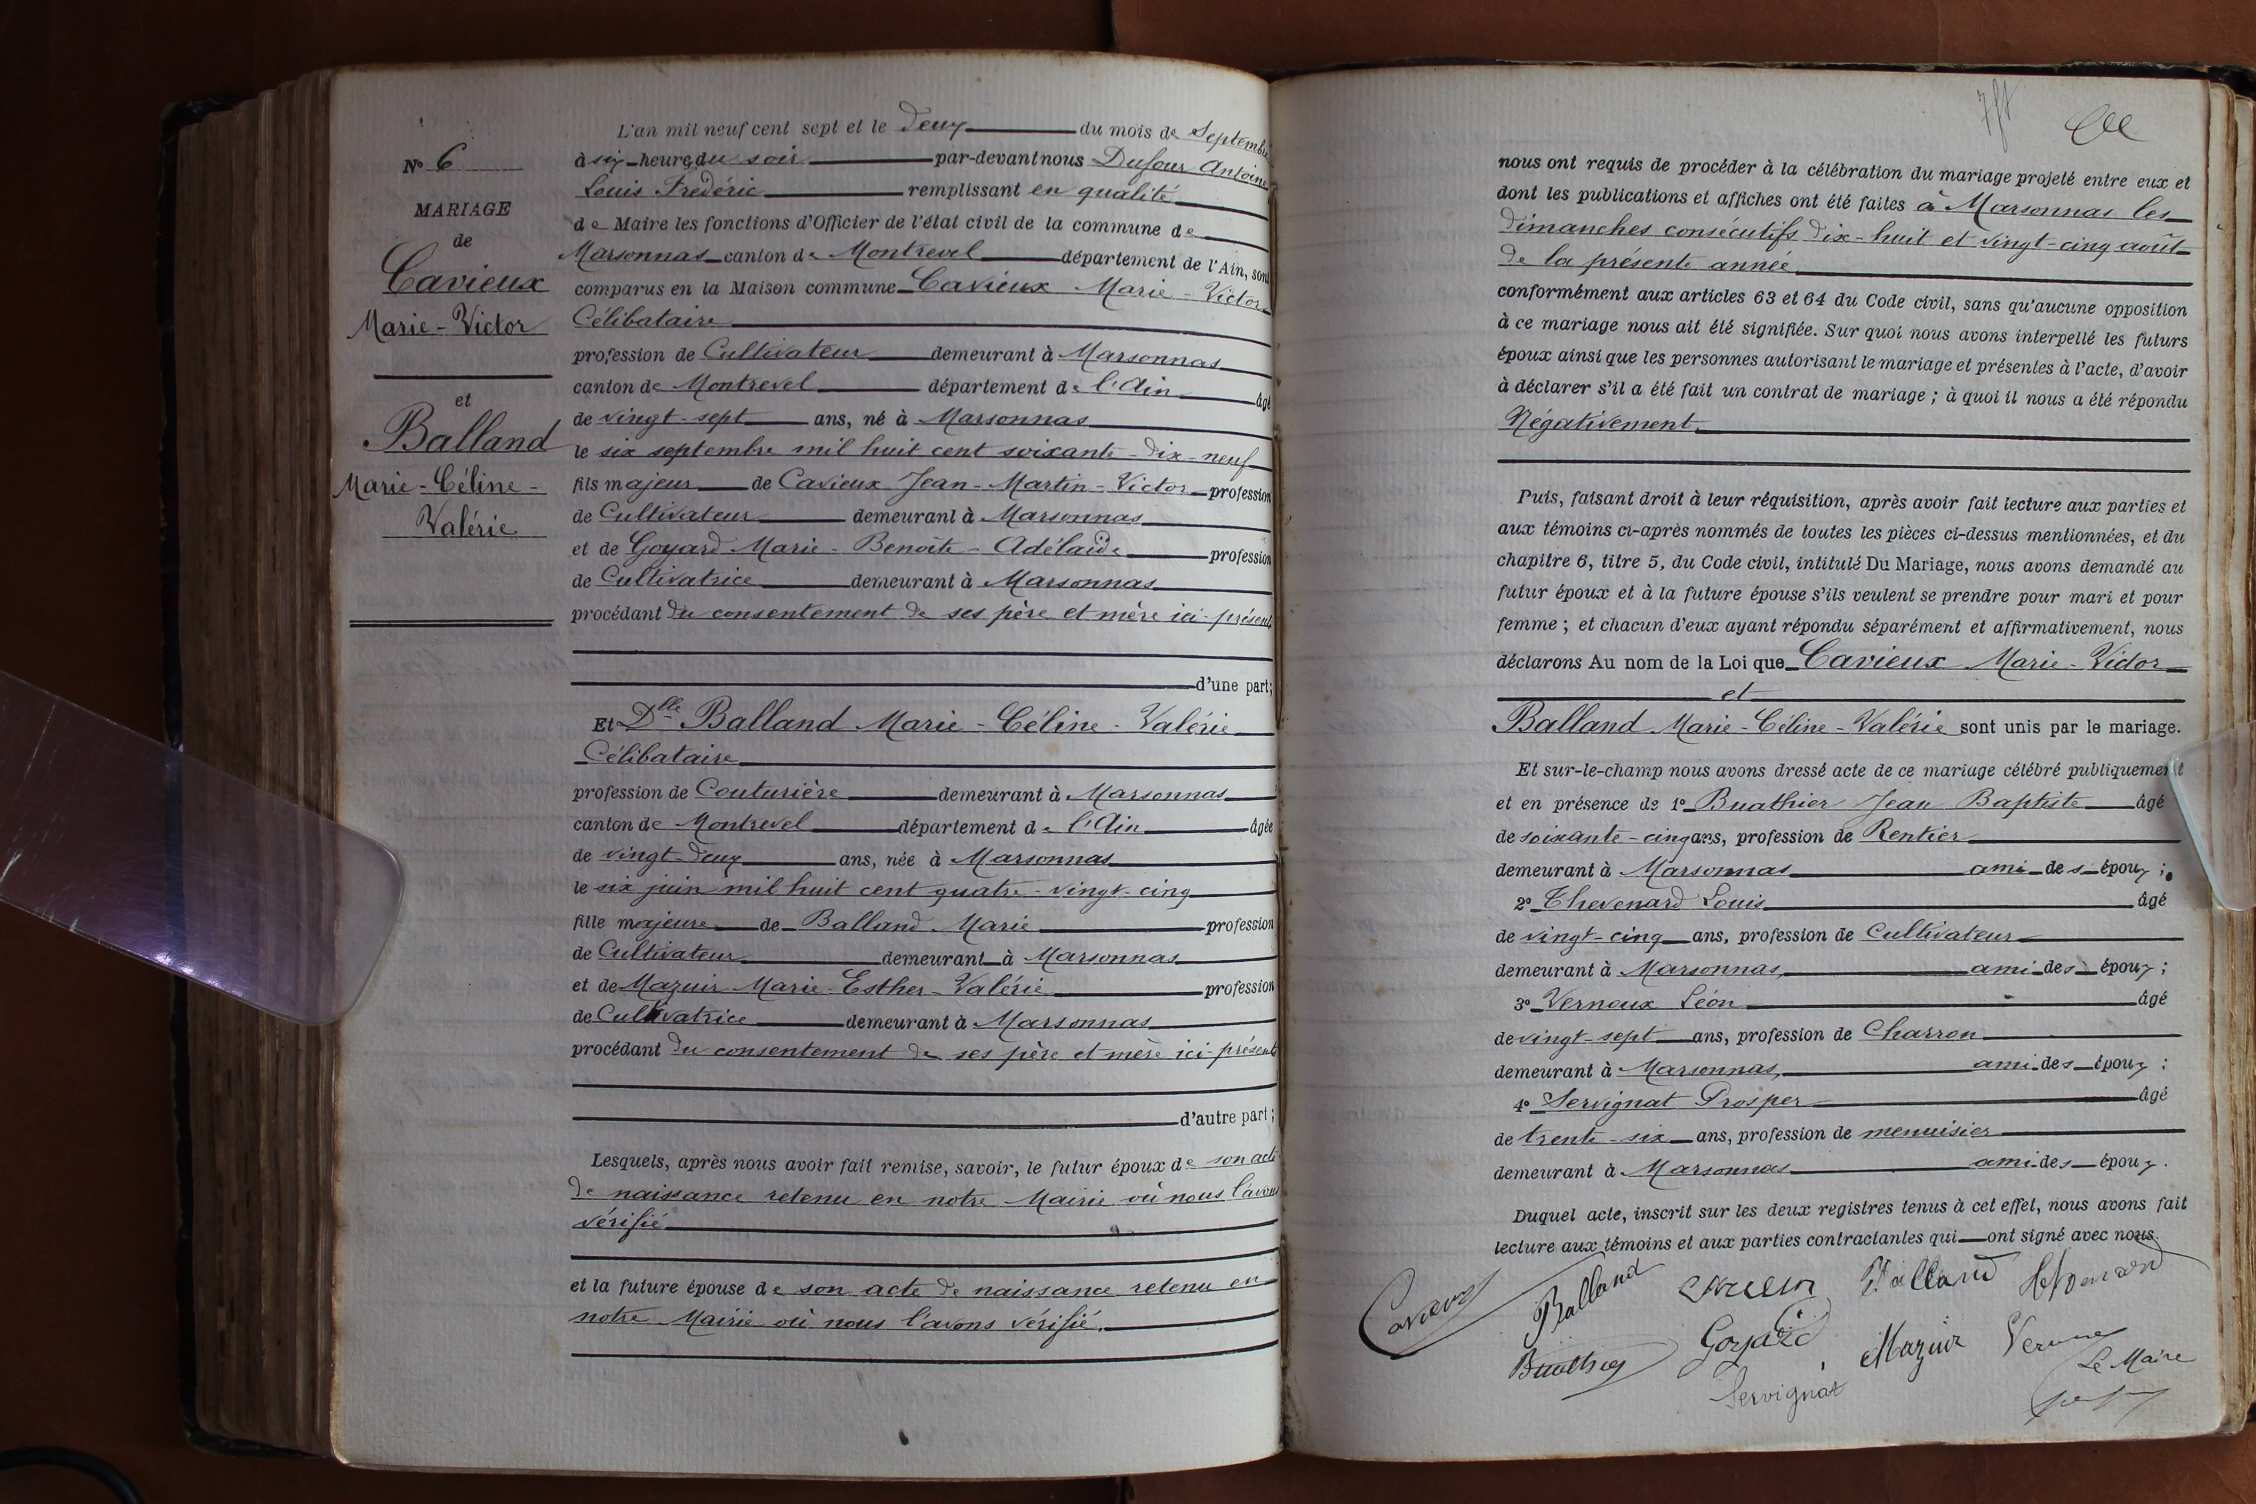 L'an mil neuf cent sept et le deux du mois de Septembre
à six heures du soir par-devant nous Dufour Antoine
Louis Frédéric remplissant en qualité
de Maire les fonctions d'Officier de l'état civil de la commune de
Marsonnas canton de Montrevel département de l'Ain, sont
comparus en la Maison commune Cavieux Marie-Victor
Célibataire
profession de Cultivateur demeurant à Marsonnas
canton de Montrevel département de l'Ain âgé
de vingt-sept ans, né à Marsonnas
le six septembre mil huit cent soixante-dix-neuf
fils majeur de Cavieux Jean-Martin-Victor profession
de Cultivateur demeurant à Marsonnas
et de Goyard Marie-Benoîte-Adélaïde profession
de Cultivatrice demeurant à Marsonnas
procédant du consentement de ses père et mère ici présents
d'une part;
Et Dlle Balland Marie-Céline-Valérie
Célibataire
profession de Couturière demeurant à Marsonnas
canton de Montrevel département de l'Ain âgée
de vingt-deux ans, née à Marsonnas
le six juin mil huit cent quatre-vingt-cinq
fille majeure de Balland Marie profession
de Cultivateur demeurant à Marsonnas
et de Mazuir Marie-Esther-Valérie profession
de Cultivatrice demeurant à Marsonnas
procédant du consentement de ses père et mère ici présents
d'autre part;
Lesquels, après nous avoir fait remise, savoir, le futur époux de son acte
de naissance retenu en notre Mairie où nous l'avons
vérifié
et la future épouse de son acte de naissance retenu en
notre Mairie où nous l'avons vérifié.
N° 6
MARIAGE
de
Cavieux
Marie-Victor
et
Balland
Marie-Céline-
Valérie
nous ont requis de procéder à la célébration du mariage projeté entre eux et
dont les publications et affiches ont été faites à Marsonnas les
dimanches consécutifs dix-huit et vingt-cinq août
de la présente année
conformément aux articles 63 et 64 du Code civil, sans qu'aucune opposition
à ce mariage nous ait été signifiée. Sur quoi nous avons interpellé les futurs
époux ainsi que les personnes autorisant le mariage et présentes à l'acte, d'avoir
à déclarer s'il a été fait un contrat de mariage; à quoi il nous a été répondu
Négativement.
Puis, faisant droit à leur réquisition, après avoir fait lecture aux parties et
aux témoins ci-après nommés de toutes les pièces ci-dessus mentionnées, et du
chapitre 6, titre 5, du Code civil, intitulé Du Mariage, nous avons demandé au
futur époux et à la future épouse s'ils veulent se prendre pour mari et pour
femme; et chacun d'eux ayant répondu séparément et affirmativement, nous
déclarons Au nom de la Loi que Cavieux Marie-Victor
et
Balland Marie-Céline-Valérie sont unis par le mariage.
Et sur-le-champ nous avons dressé acte de ce mariage célébré publiquement
et en présence de 1° Buathier Jean Baptiste âgé
de soixante-cinq ans, profession de Rentier
demeurant à Marsonnas ami des époux;
2° Thevenard Louis âgé
de vingt-cinq ans, profession de Cultivateur
demeurant à Marsonnas ami des époux;
3° Verneux Léon âgé
de vingt-sept ans, profession de Charron
demeurant à Marsonnas, ami des époux;
4° Servignat Prosper âgé
de trente-six ans, profession de menuisier
demeurant à Marsonnas ami des époux.
Duquel acte, inscrit sur les deux registres tenus à cet effet, nous avons fait
lecture aux témoins et aux parties contractantes qui ont signé avec nous.
Cavieux Balland Balland
Buathier Goyard Mazuir
Servignat Le Maire